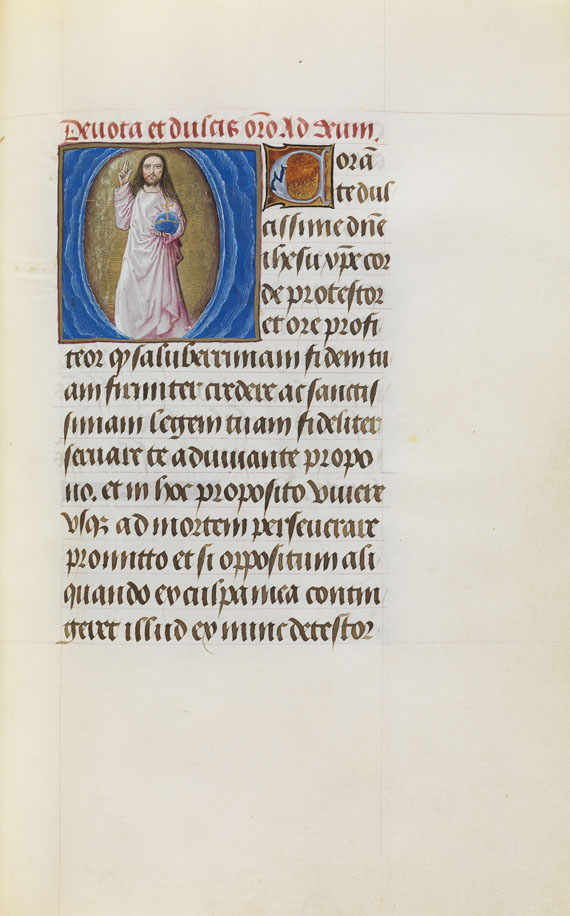 Deuota et dulcis orō Ad Xum.
Corā
te dul
cissime dnē
ihesu xp̄e cor
de protestor
et ore profi
teor qꝫ saluberrimam fidem tu
am firmiter credere ac sanctis
simam legem tuam fideliter
seruare te adiuuante propo
no. et in hoc proposito viuere
vsqꝫ ad mortem perseuerare
promitto et si oppositum ali
quando ex culpa mea contin
geret illud ex nunc detestor